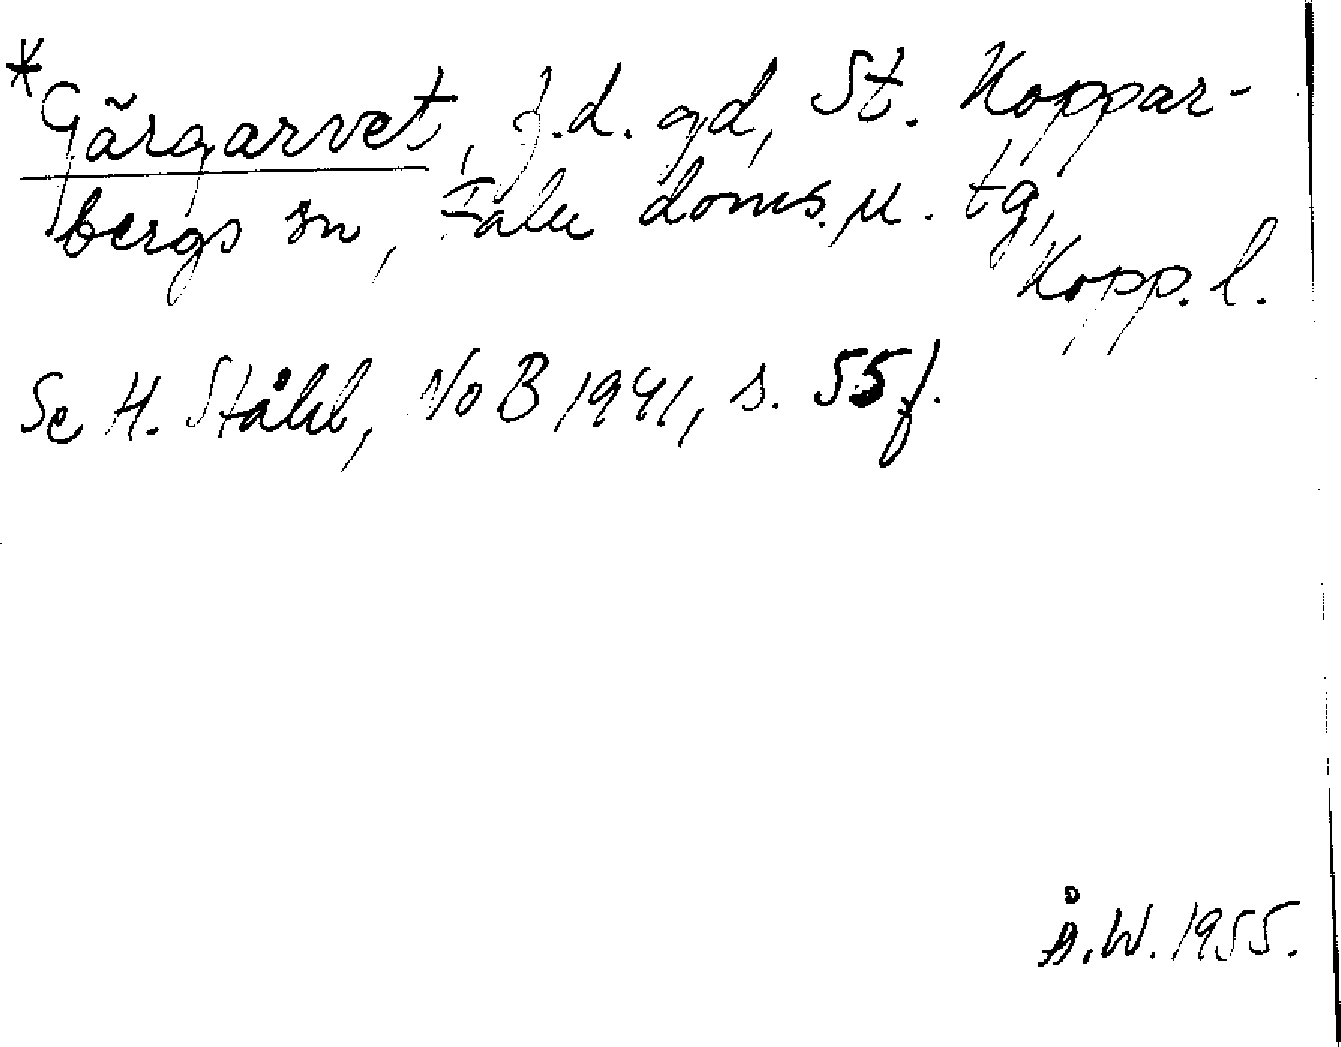 *Gärgarvet, f.d. gd, St. Koppar-
bergs sn, Falu doms. u. tg,
Kopp. l.
Se H. Ståhl, NoB 1941, s. 55 f.
Å.W. 1955.